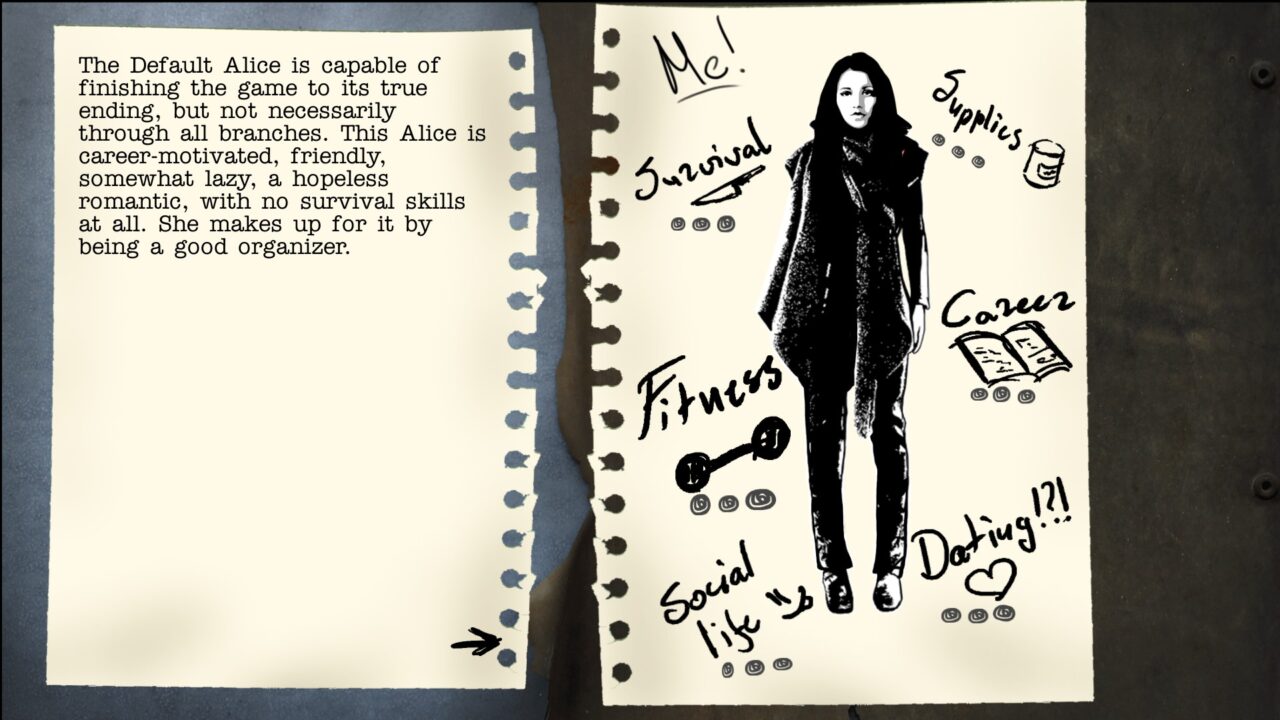 The Default Alice is capable of
finishing the game to its true
ending, but not necessarily
through all branches. This Alice is
career-motivated, friendly,
somewhat lazy, a hopeless
romantic, with no survival skills
at all. She makes up for it by
being a good organizer.
Me!
Supplies
Survival
Career
Fitness
Dating!?!
Social
life